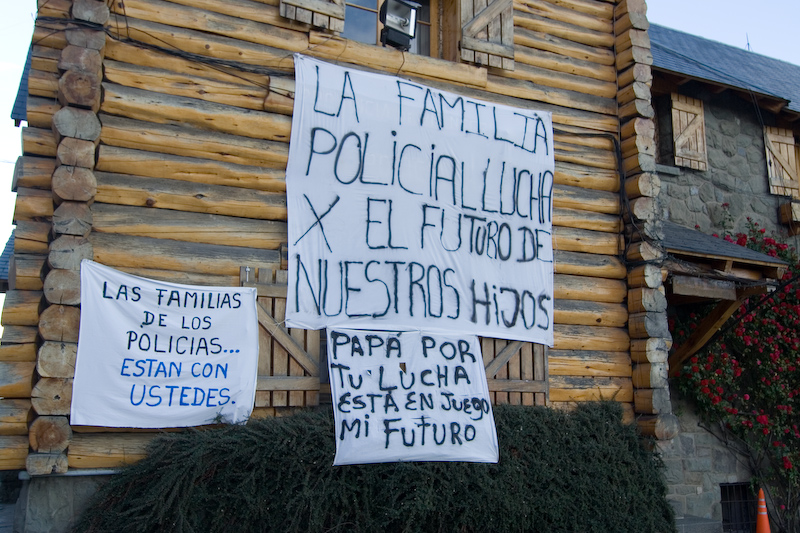 LA FAMILIA
POLICIAL LUCHA
X EL FUTURO DE
NUESTROS HIJOS
LAS FAMILIAS
DE LOS
POLICIAS...
ESTAN CON
USTEDES.
PAPÁ POR
TU LUCHA
ESTÁ EN JUEGO
MI FUTURO